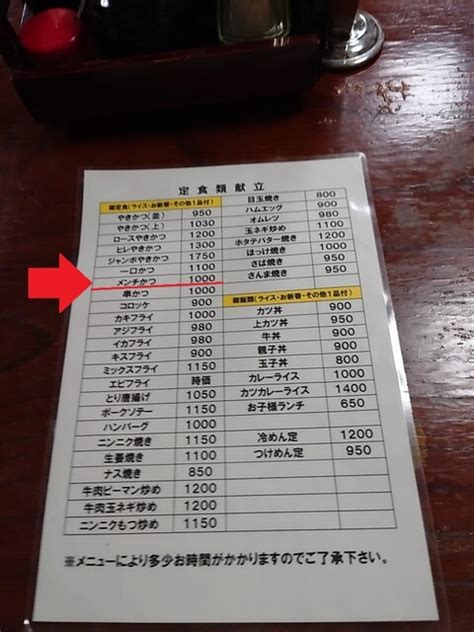 定食類献立
御定食(ライス・お新香・その他1品付)
やきかつ(並) 950
やきかつ(上) 1030
ロースやきかつ 1200
ヒレやきかつ 1300
ジャンボやきかつ 1750
一口かつ 1100
メンチかつ 1000
串かつ 1000
コロッケ 900
カキフライ 1000
アジフライ 980
イカフライ 980
キスフライ 900
ミックスフライ 1150
エビフライ 時価
とり唐揚げ 1050
ポークソテー 1150
ハンバーグ 1000
ニンニク焼き 1150
生姜焼き 1100
ナス焼き 850
牛肉ピーマン炒め 1200
牛肉玉ネギ炒め 1200
ニンニクもつ炒め 1150
目玉焼き 800
ハムエッグ
オムレツ
玉ネギ炒め
ホタテバター焼き
ほっけ焼き
さば焼き 950
さんま焼き 950
御飯類(ライス・お新香・その他1品付)
カツ丼 900
上カツ丼 950
牛丼 900
親子丼 900
玉子丼 800
カレーライス 1000
カツカレーライス 1400
お子様ランチ 650
冷めん定 1200
つけめん定 950
※メニューにより多少お時間がかかりますのでご了承下さい。